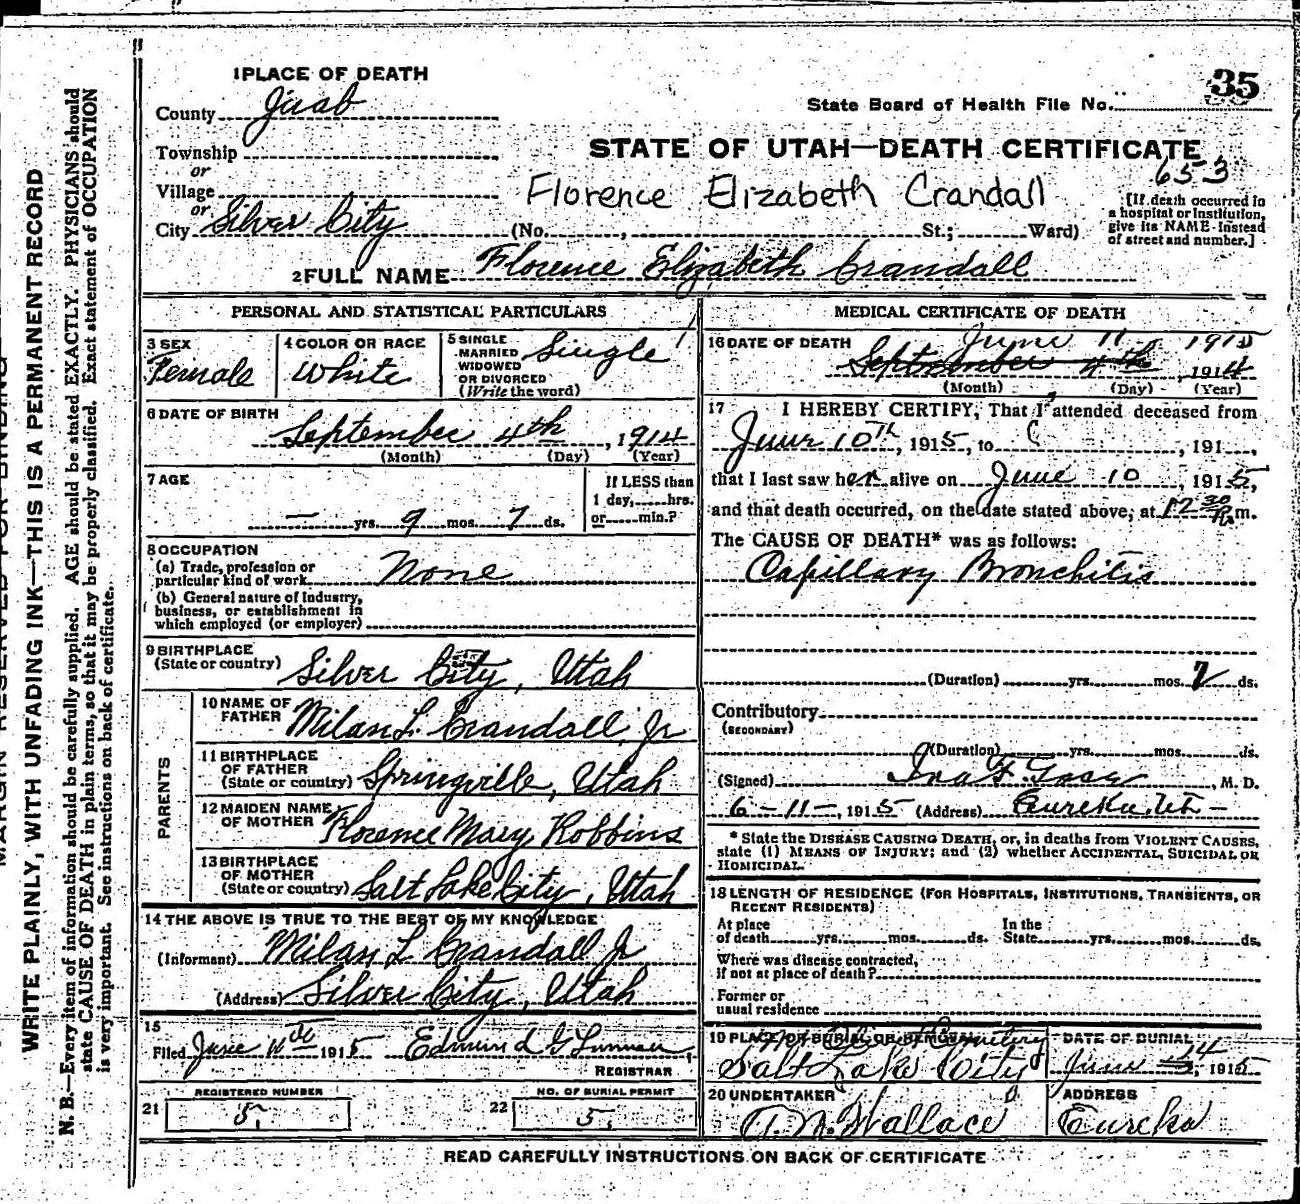 35
1 PLACE OF DEATH
County Juab
State Board of Health File No.
Township
or
STATE OF UTAH—DEATH CERTIFICATE
653
Village
or
Florence Elizabeth Crandall
[If death occurred in a hospital or institution, give its NAME instead of street and number.]
City Silver City (No. , St.; Ward)
2 FULL NAME Florence Elizabeth Crandall
PERSONAL AND STATISTICAL PARTICULARS
3 SEX Female
4 COLOR OR RACE White
5 SINGLE MARRIED WIDOWED OR DIVORCED (Write the word) Single
6 DATE OF BIRTH
September 4th, 1914
(Month) (Day) (Year)
7 AGE
If LESS than 1 day, hrs. or min.?
— yrs. 9 mos. 7 ds.
8 OCCUPATION
(a) Trade, profession or particular kind of work None
(b) General nature of Industry, business, or establishment in which employed (or employer)
9 BIRTHPLACE (State or country) Silver City, Utah
PARENTS
10 NAME OF FATHER Milan L. Crandall Jr
11 BIRTHPLACE OF FATHER (State or country) Springville, Utah
12 MAIDEN NAME OF MOTHER Florence Mary Robbins
13 BIRTHPLACE OF MOTHER (State or country) Salt Lake City, Utah
14 THE ABOVE IS TRUE TO THE BEST OF MY KNOWLEDGE
(Informant) Milan L Crandall Jr
(Address) Silver City, Utah
15
Filed June 1915 Edmund G
REGISTRAR
REGISTERED NUMBER
21 5.
NO. OF BURIAL PERMIT
22 5.
MEDICAL CERTIFICATE OF DEATH
16 DATE OF DEATH June 11 1915
September 4th, 1914
(Month) (Day) (Year)
17 I HEREBY CERTIFY, That I attended deceased from
June 10th, 1915, to , 191 ,
that I last saw her alive on June 10, 1915,
and that death occurred, on the date stated above, at 12 30 P.m.
The CAUSE OF DEATH* was as follows:
Capillary Bronchitis
(Duration) yrs. mos. 2 ds.
Contributory
(SECONDARY)
(Duration) yrs. mos. ds.
(Signed) , M. D.
6-11-, 1915 (Address) Eureka, Ut-
* State the DISEASE CAUSING DEATH, or, in deaths from VIOLENT CAUSES, state (1) MEANS OF INJURY; and (2) whether ACCIDENTAL, SUICIDAL OR HOMICIDAL.
18 LENGTH OF RESIDENCE (FOR HOSPITALS, INSTITUTIONS, TRANSIENTS, OR RECENT RESIDENTS)
At place of death yrs. mos. ds. In the State yrs. mos. ds.
Where was disease contracted, if not at place of death?
Former or usual residence
19 PLACE OF BURIAL OR REMOVAL
Cemetery
Salt Lake City
DATE OF BURIAL
June 14, 1915
20 UNDERTAKER
Wallace
ADDRESS
Eureka
READ CAREFULLY INSTRUCTIONS ON BACK OF CERTIFICATE
MARGIN RESERVED FOR BINDING
WRITE PLAINLY, WITH UNFADING INK—THIS IS A PERMANENT RECORD
N. B.—Every item of information should be carefully supplied. AGE should be stated EXACTLY. PHYSICIANS should
state CAUSE OF DEATH in plain terms, so that it may be properly classified. Exact statement of OCCUPATION
is very important. See instructions on back of certificate.